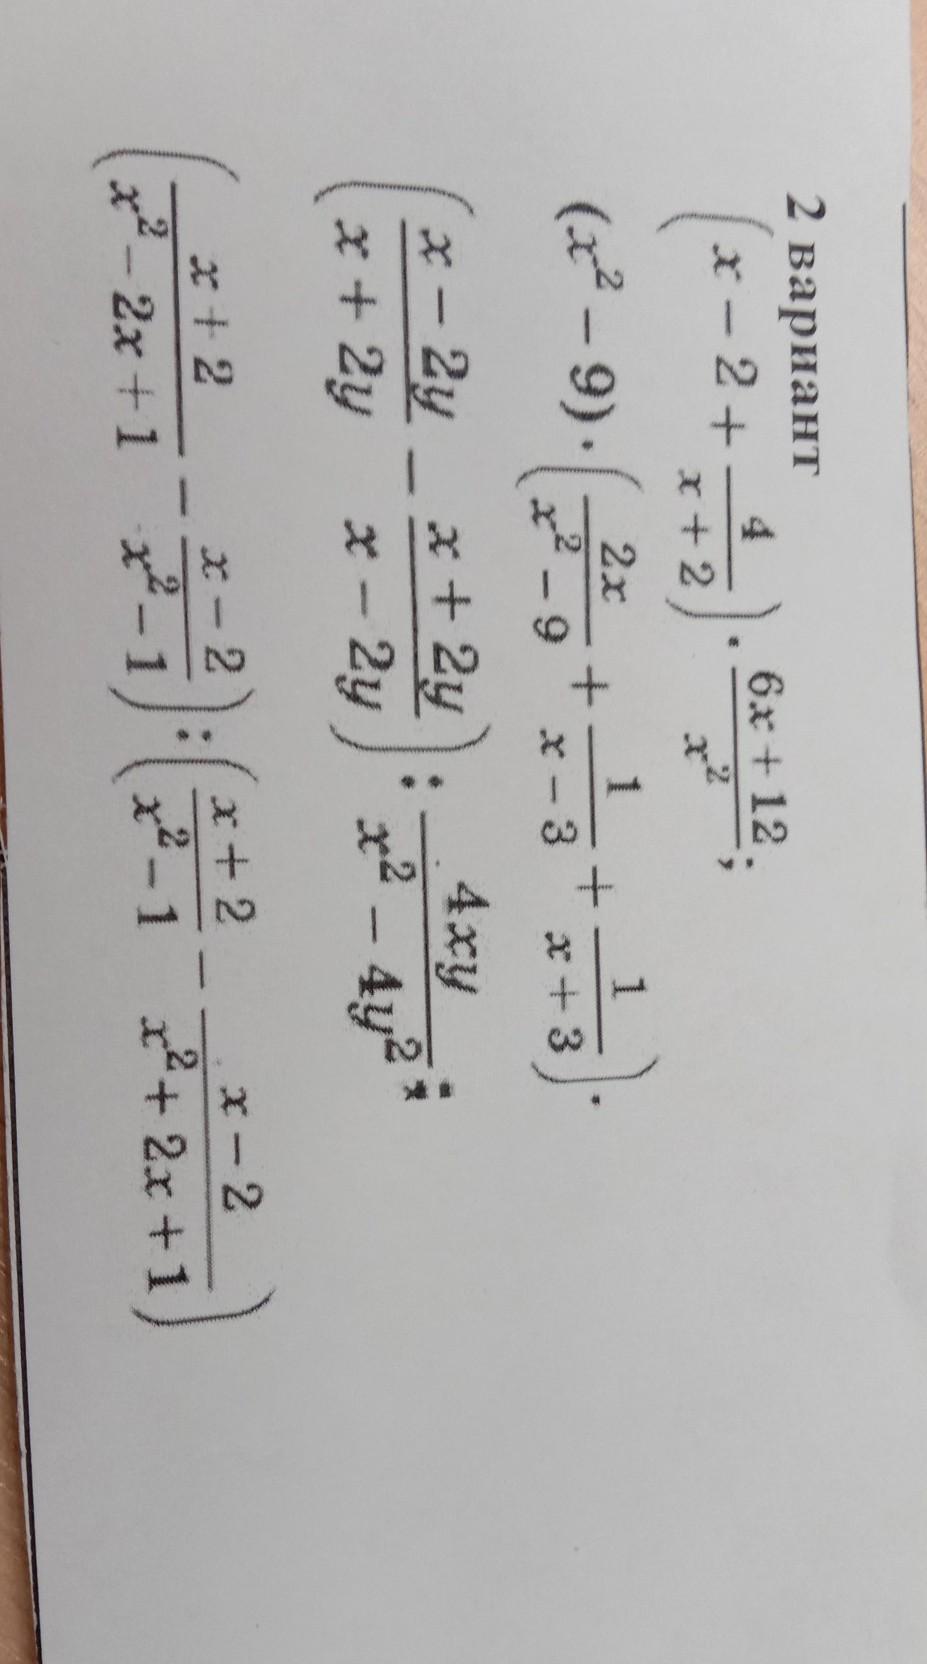 2 вариант
(x − 2 + 4/(x + 2)) · (6x + 12)/x²;
(x² − 9) · (2x/(x² − 9) + 1/(x − 3) + 1/(x + 3)).
((x − 2y)/(x + 2y) − (x + 2y)/(x − 2y)) : 4xy/(x² − 4y²);
((x + 2)/(x² − 2x + 1) − (x − 2)/(x² − 1)) : ((x + 2)/(x² − 1) − (x − 2)/(x² + 2x + 1))